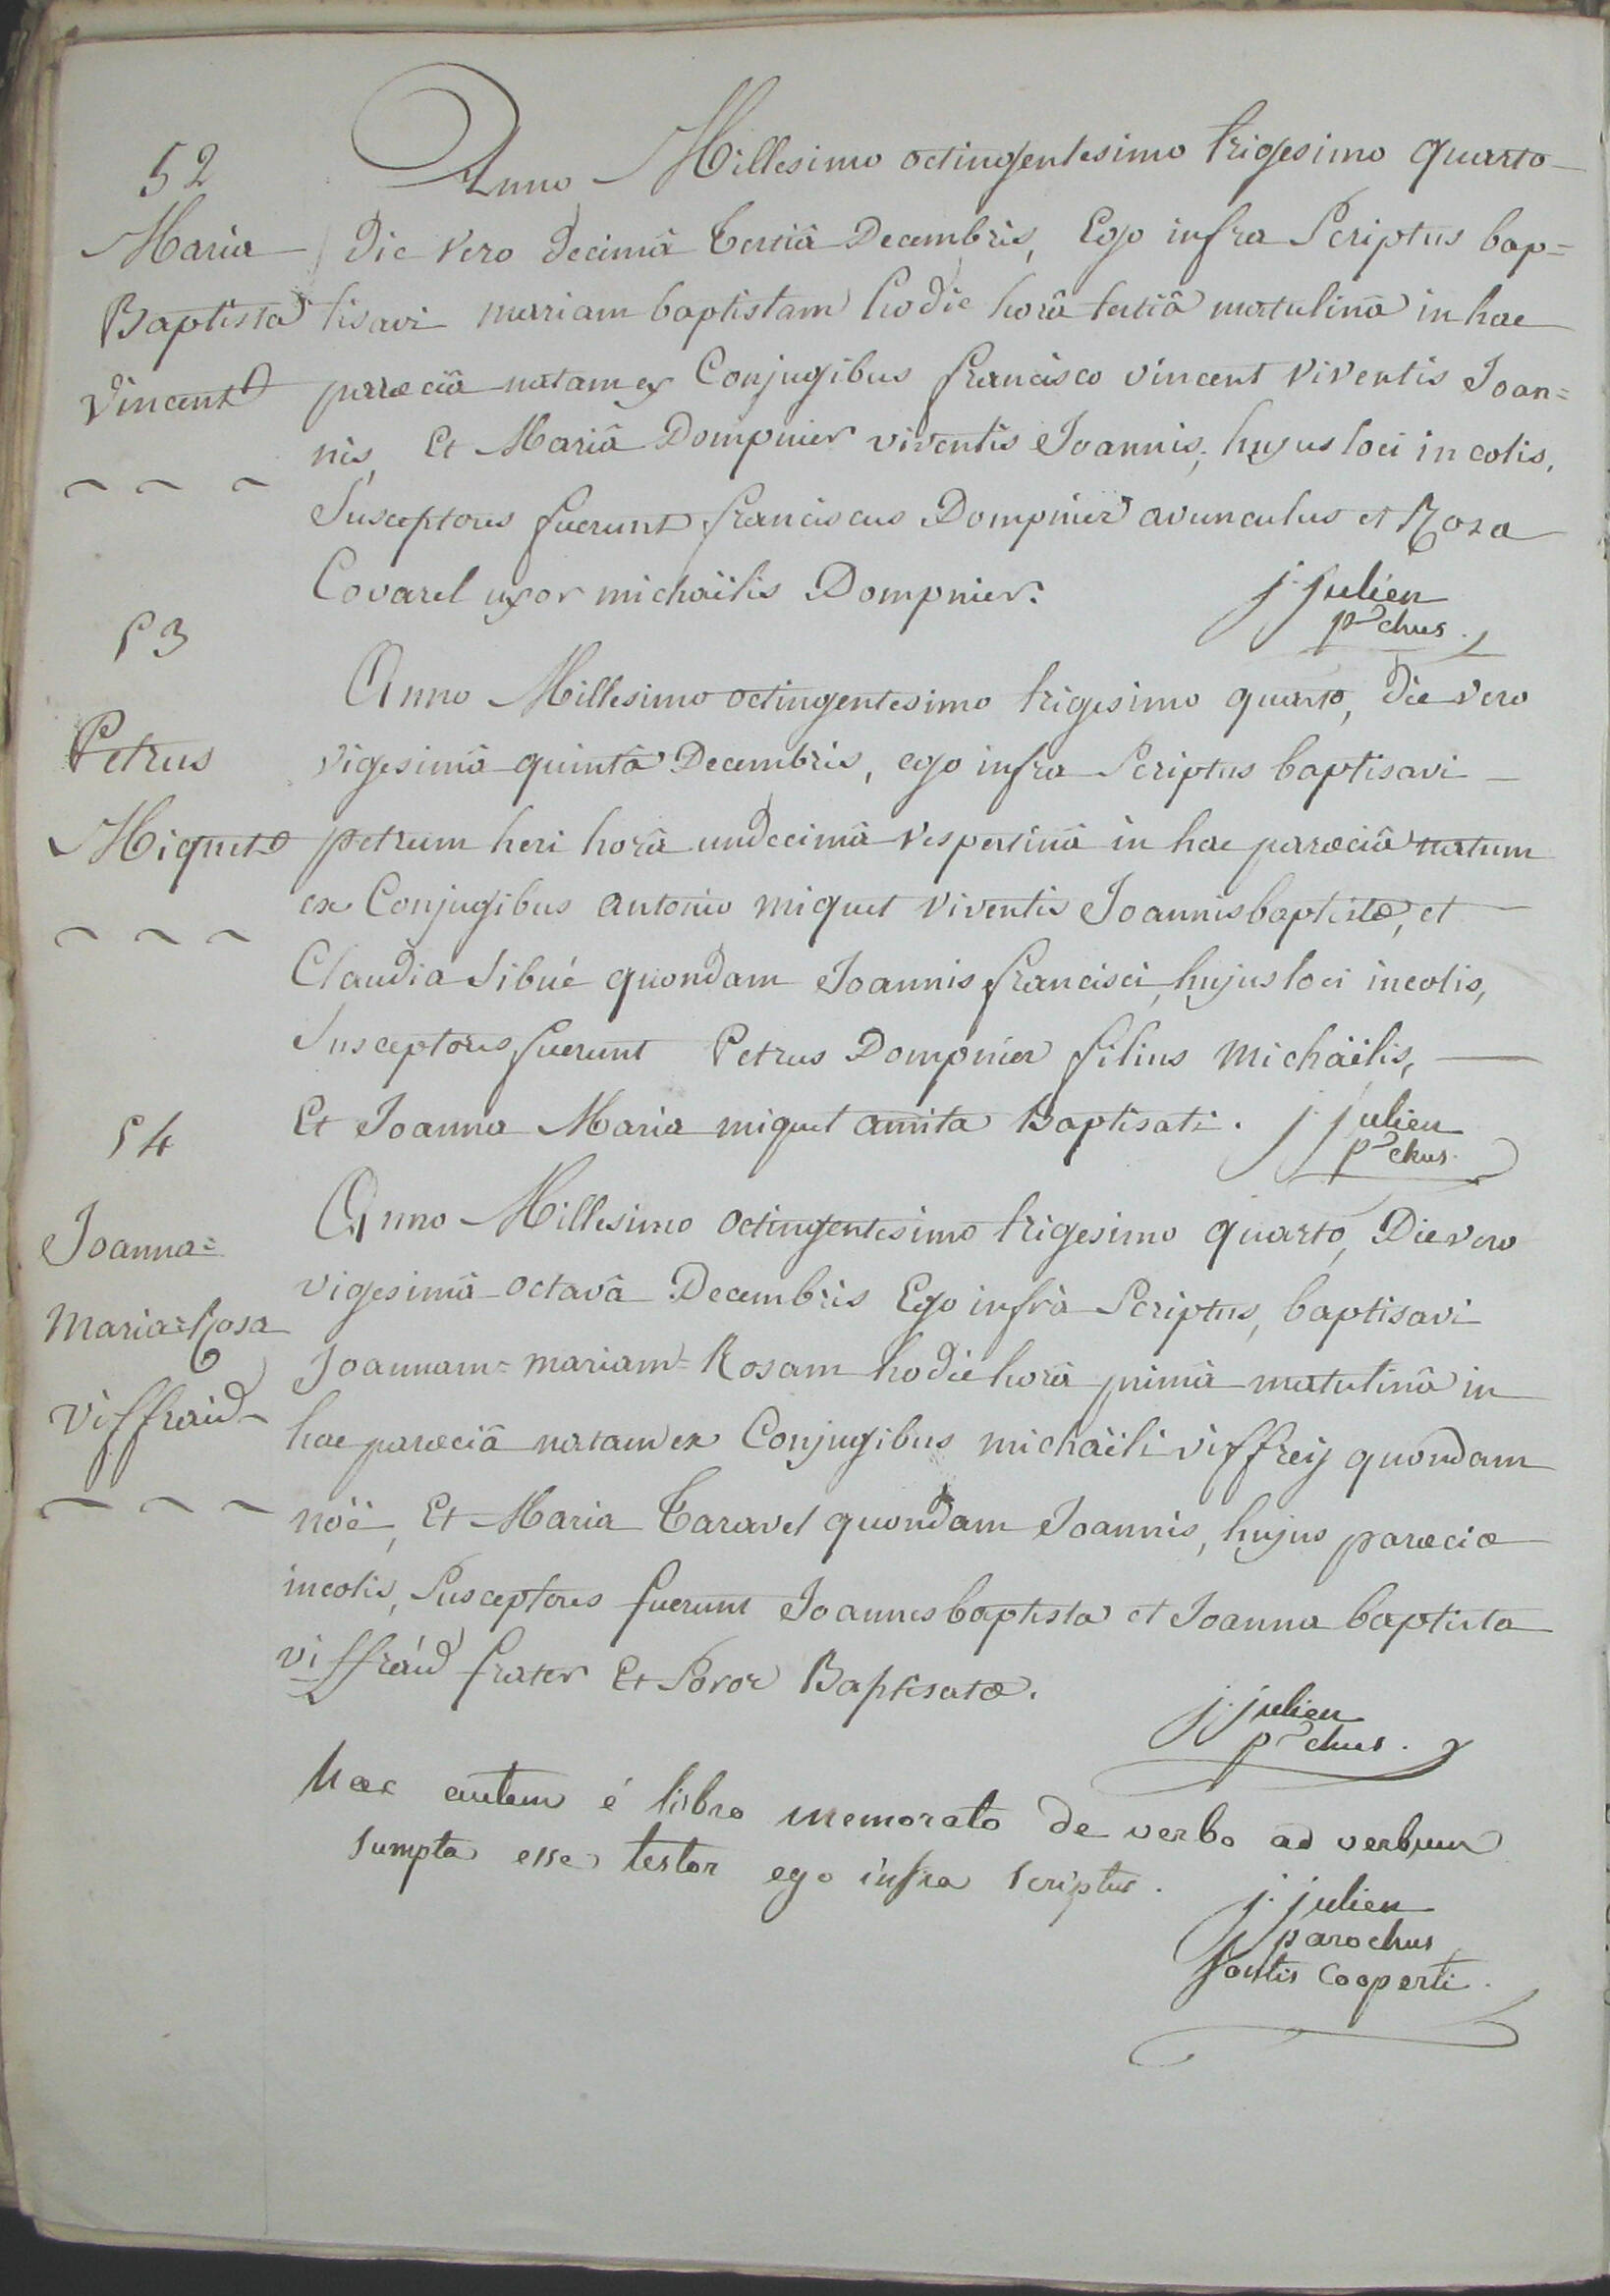 52
Maria
Baptista
Vincent
Anno Millesimo octingentesimo trigesimo quarto
die vero decimâ tertiâ Decembris, Ego infra Scriptus bap=
tisavi mariam baptistam hodie horâ tertiâ matutinâ in hac
parœciâ natam ex Conjugibus francisco vincent viventis Joan=
nis, Et Mariâ Dompnier viventis Joannis, hujus loci incolis,
Susceptores fuerunt franciscus Dompnier avunculus et Roza
Covarel uxor michäélis Dompnier.
j. julien
p^r chus.
53
Petrus
Miquet
Anno Millesimo octingentesimo trigesimo quarto, die vero
vigesimâ quintâ Decembris, ego infra Scriptus baptisavi
petrum heri horâ undecimâ vespertinâ in hac parœciâ natum
ex Conjugibus antonio miquet viventis Joannisbaptistæ, et
Claudia Sibué quondam Joannis francisci, hujus loci incolis,
Susceptores fuerunt Petrus Dompnier filius Michäélis,
Et Joanna Maria miquet amita Baptisati.
j. julien
p^r chus.
54
Joanna=
Maria=Rosa
Viffraid
Anno Millesimo octingentesimo trigesimo quarto, Die vero
vigesimâ octavâ Decembris Ego infrà Scriptus, baptisavi
Joannam=mariam=Rosam hodie horâ primâ matutinâ in
hac parœciâ natam ex Conjugibus michäéli viffrey quondam
nöé, Et Maria Taravel quondam Joannis, hujus parœciæ
incolis, Susceptores fuerunt Joannesbaptista et Joanna baptista
viffraid frater Et Soror Baptisatæ.
j. julien
p^r chus.
Hæc autem é libro memorato de verbo ad verbum
sumpta esse testor ego infra scriptus.
j. julien
parochus
fontis cooperti.